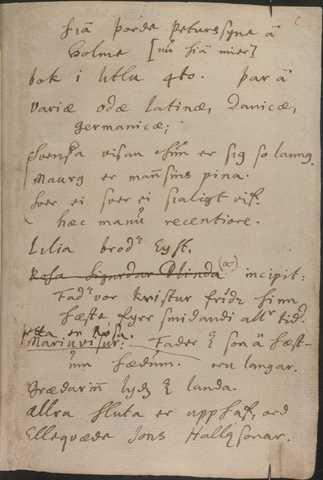 frä þorde Peturssyne ä
Holme [nu hiä mier]
bok i litlu 4to. þar ä
variæ odæ latinæ, Danicæ,
germanicæ;
visan er sig so laung.
Maurg er mannsins pina.
hver ei sver ei sialigt vif.
hæc manu recentiore.
Lilia brodr Eyst.
Rosa Sigurdar Blinda (a) incipit:
Fadr vor kristur fridr hinn
hæste fyrr smidandi allr tid.
þetta en Rosa.
Mariuvisur: Fader & son ä hæst-
um hædum. eru langar.
Grædarinn lyds & landa.
allra sluta er upphaf, ord
Ellequæde Jons Hallssonar.